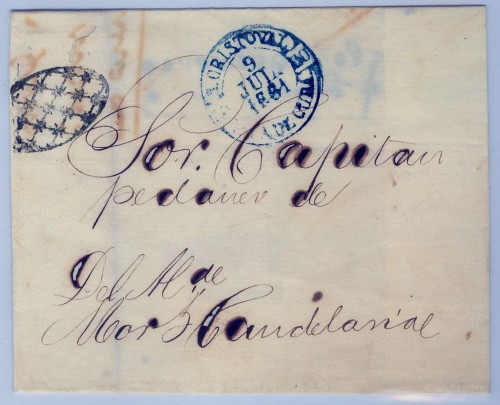 CRISTOVAL
9
JUL.
1861
Sor. Capitan
pedaneo de
Del Al.de
Mor
Candelaria